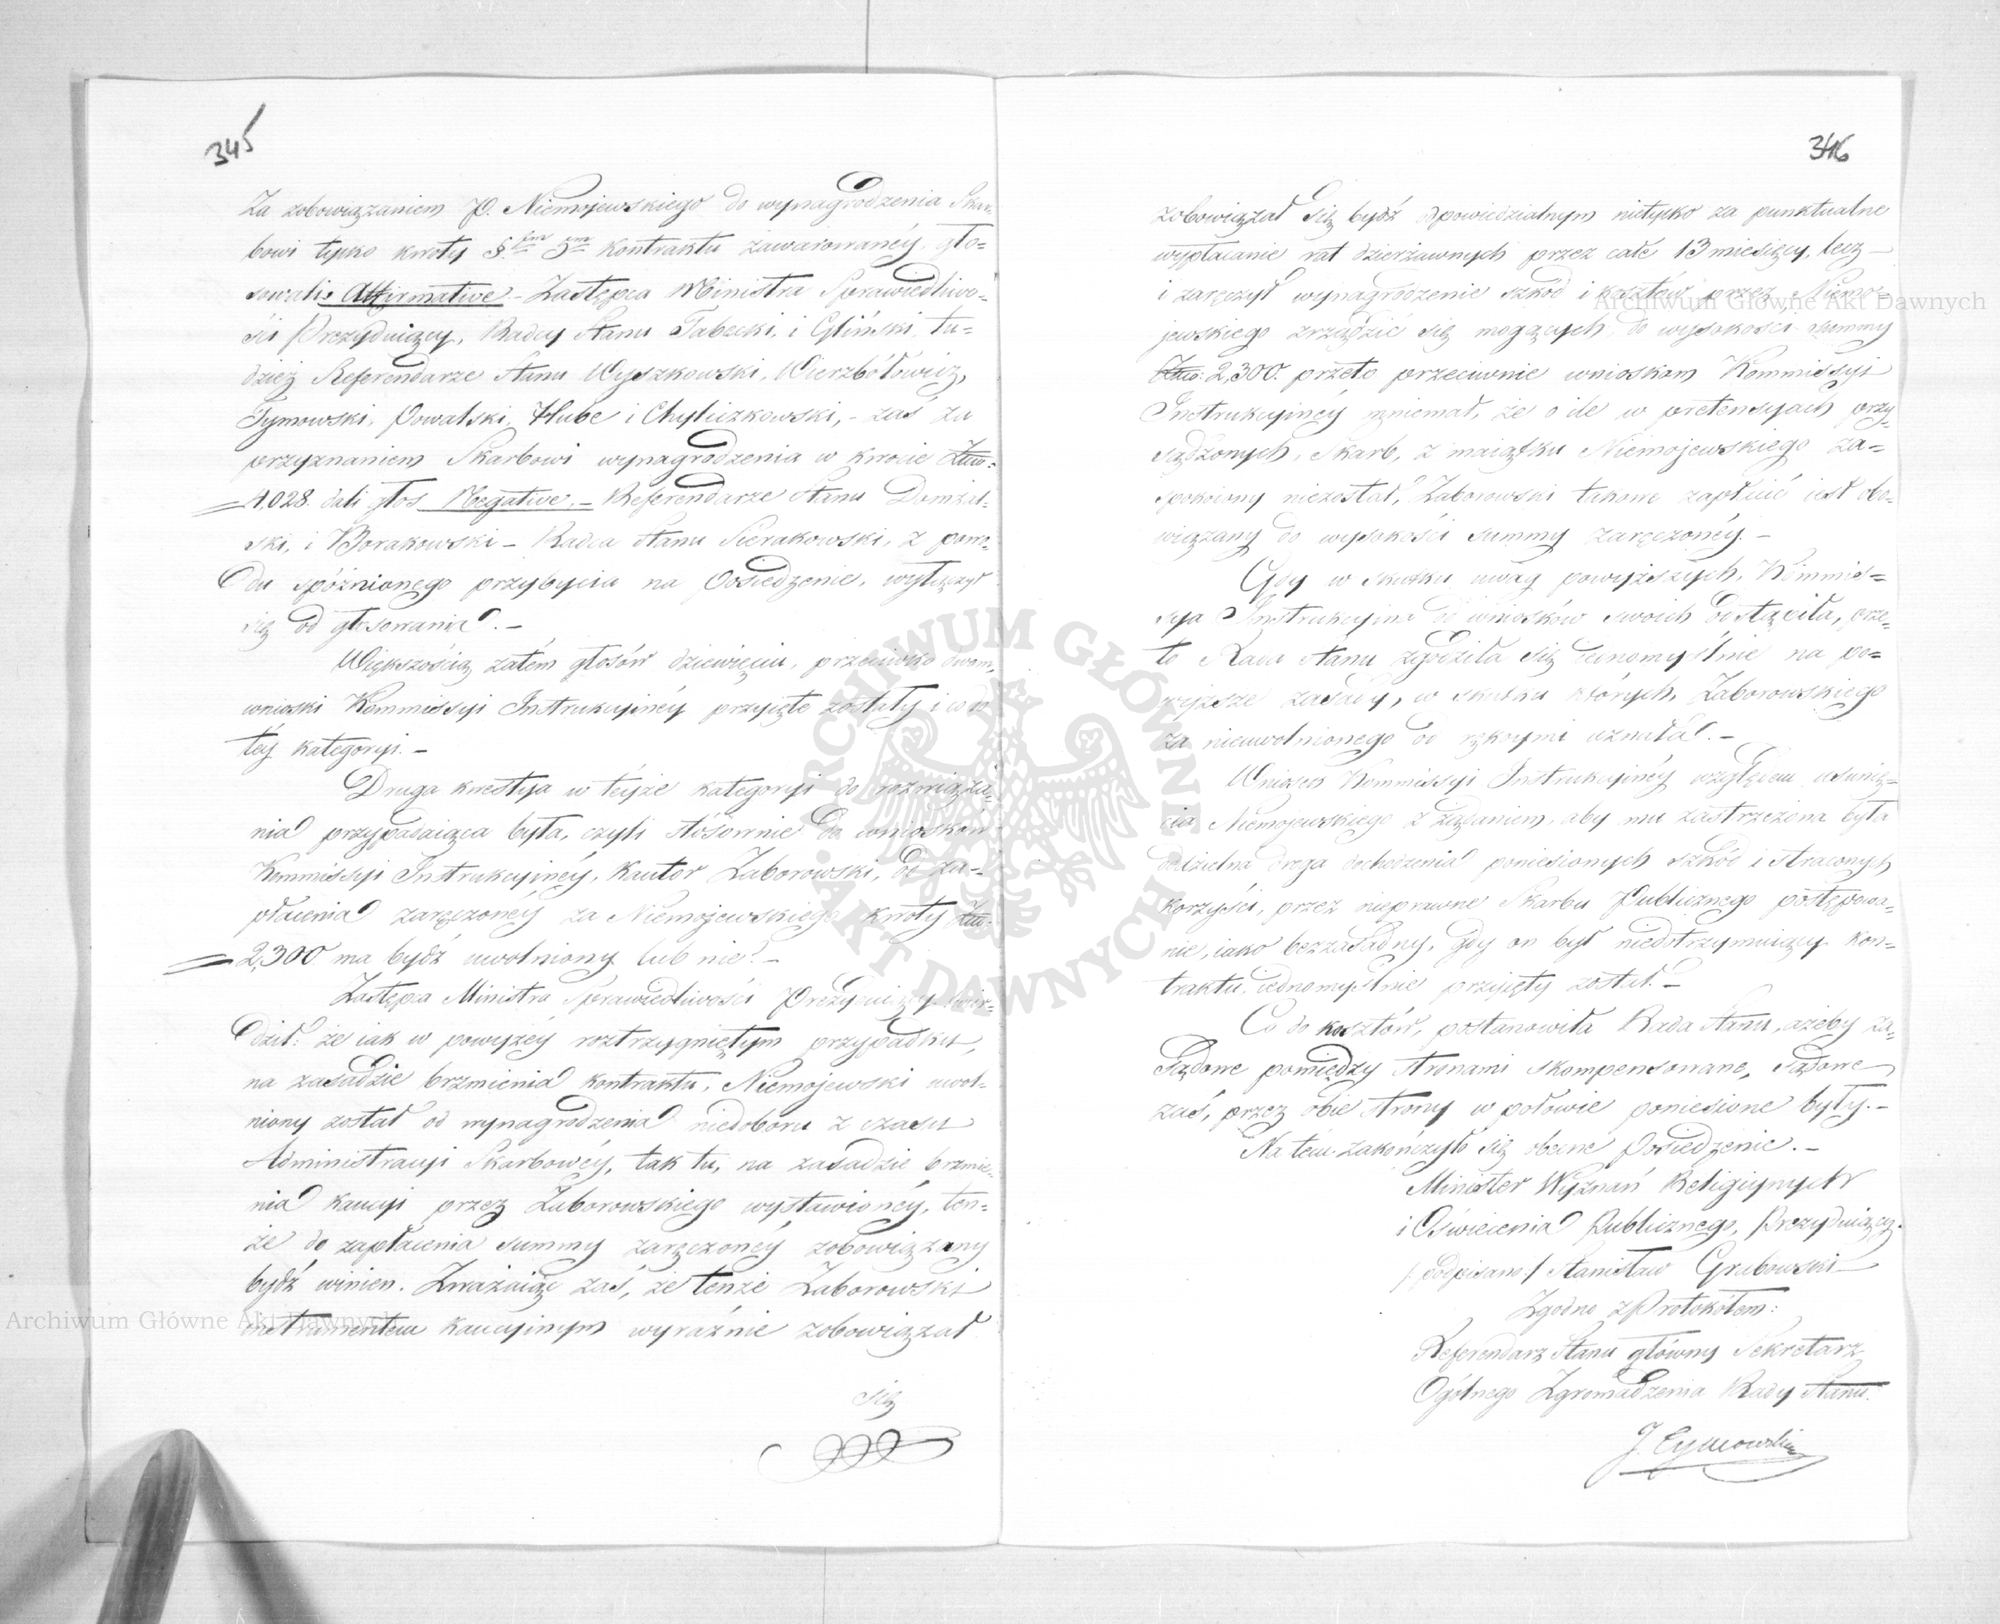 345
Za zobowiązaniem P. Niemojewskiego do wynagrodzenia Skar-
bowi tylko kwoty § em 5m kontraktu zawarowanéy, gło-
sowali: Affirmative – Zastępca Ministra Sprawiedliwo-
ści Prezyduiący, Radcy Stanu Tabecki, i Gliński, tu-
dzież Referendarze Stanu Wyszkowski, Wierzbołowicz,
Tymowski, Powalski, Hube i Chyliczkowski, – zaś za
przyznaniem Skarbowi wynagrodzenia w kwocie
4,028. dali głos Negative, – Referendarze Stanu
ski, i Borakowski – Radca Stanu Sierakowski, z powo-
du spóźnionego przybycia na Posiedzenie, wyłączył
się od głosowania. –
Większością zatém głosów dziewięciu, przeciwko dwom,
wnioski Kommissyi Instrukcyinéy przyięte zostały i co do
téy kategoryi. –
Druga kwestya w téyże kategoryi do rozwiąza-
nia przypadaiąca była, czyli stósownie do wniosków
Kommissyi Instrukcyinéy, Kautor Zaborowski, od za-
płacenia zaręczonéy za Niemojewskiego kwoty
2,300 ma bydź uwolniony lub nie? –
Zastępca Ministra Sprawiedliwości Prezyduiący twier-
dził: że iak w powyżéy roztrzygniętym przypadku,
na zasadzie brzmienia kontraktu, Niemojewski uwol-
niony został od wynagrodzenia niedoboru z czasu
Administracyi Skarbowéy, tak tu, na zasadzie brzmie-
nia kaucyi przez Zaborowskiego wystawionéy, ten-
że do zapłacenia summy zaręczonéy zobowiązany
bydź winien. Zważaiąc zaś, że tenże Zaborowski
instrumentem kaucyinym wyraźnie zobowiązał
się
346
zobowiązał się bydź odpowiedzialnym nietylko za punktualne
wypłacanie rat dzierżawnych przez całe 13 miesięcy, lecz
i zaręczył wynagrodzenie szkód i kosztów przez Niemo-
jewskiego zrządzić się mogących, do wysokości summy
2,300. przeto przeciwnie wnioskom Kommissyi
Instrukcyinéy mniemał, że o ile w pretensyach przy-
sądzonych, Skarb, z maiątku Niemojewskiego za-
spokoiony niezostał, Zaborowski takowe zapłacić iest obo-
wiązany do wysokości summy zaręczonéy. –
Gdy w skutku uwag powyższych, Kommis-
sya Instrukcyina od wniosków swoich odstąpiła, prze-
to Rada Stanu zgodziła się iednomyślnie na po-
wyższe zasady, w skutku których, Zaborowskiego
za nieuwolnionego od rękoymi uznała. –
Wniosek Kommissyi Instrukcyinéy względem usunię-
cia Niemojewskiego z żądaniem, aby mu zastrzeżona była
oddzielna droga dochodzenia poniesionych szkód i straconych
korzyści, przez nieprawne Skarbu Publicznego postępowa-
nie, iako bezzasadny, gdy on był niedotrzymuiący kon-
traktu, iednomyślnie przyięty został. –
Co do kosztów, postanowiła Rada Stanu, ażeby za-
sądowe pomiędzy stronami skompensowane, sądowe
zaś, przez obie strony w połowie poniesione były. –
Na tém zakończyło się obecne Posiedzenie. –
Minister Wyznań Religiynych
i Oświecenia Publicznego, Prezyduiący.
/podpisano/ Stanisław Grabowski
Zgodno z Protokółem:
Referendarz Stanu główny Sekretarz
Ogólnego Zgromadzenia Rady Stanu.
J. Tymowski
Archiwum Główne Akt Dawnych
Archiwum Główne Akt Dawnych
ARCHIWUM GŁÓWNE AKT DAWNYCH